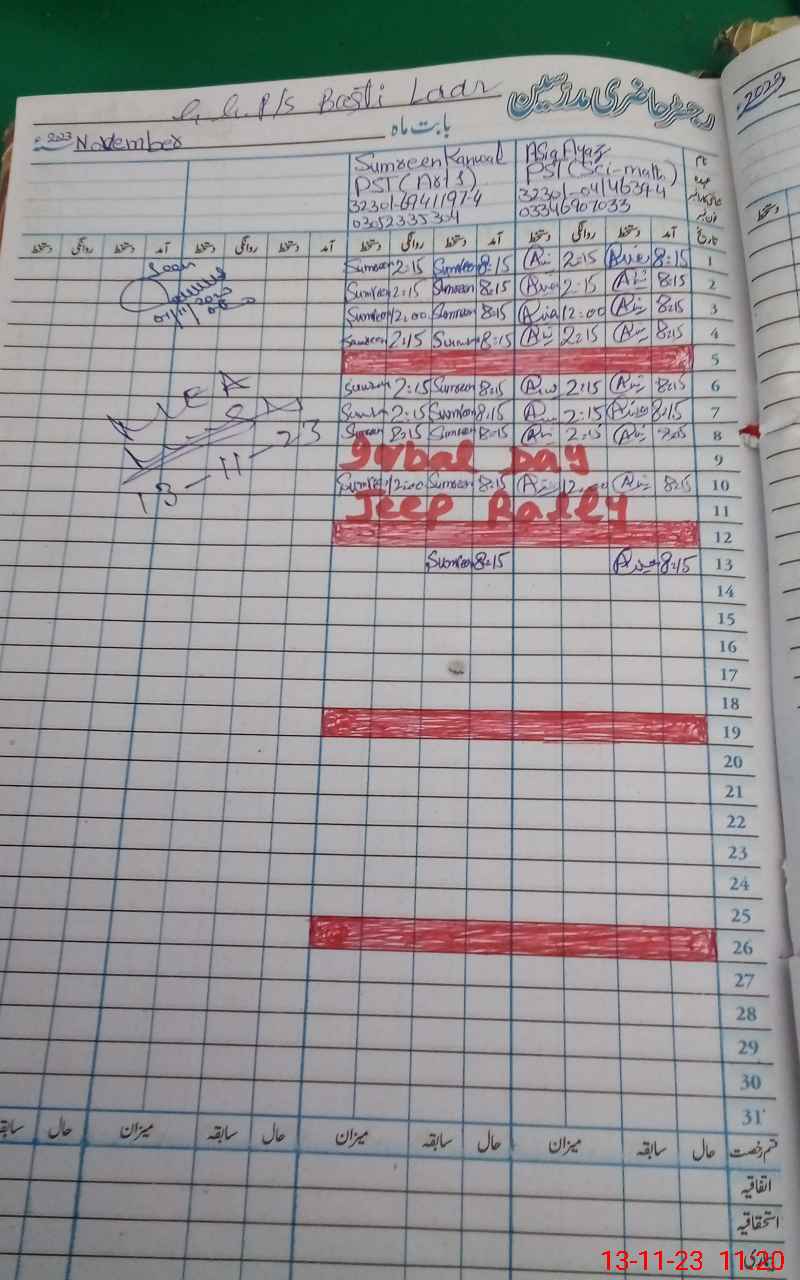 G.G.P/S Basti Ladr
رجسٹر حاضری مدرسین
2023 November بابت ماہ
2023
Sumreen Kanwal
PST (Arts)
32301-6941197-4
03052335304
Asia Ayaz
PST (Sci-math)
32301-0414639-4
03346907033
نام
عہدہ
تاریخ
دستخط روانگی دستخط آمد دستخط روانگی دستخط آمد دستخط روانگی دستخط آمد دستخط روانگی دستخط آمد
Sumreen 2:15 Sumreen 8:15 2:15 8:15 1
Sumreen 2:15 Sumreen 8:15 2:15 8:15 2
Sumreen 12:00 Sumreen 8:15 Asia 12:00 8:15 3
Sumreen 2:15 Sumreen 8:15 2:15 8:15 4
5
Sumreen 2:15 Sumreen 8:15 2:15 8:15 6
Sumreen 2:15 Sumreen 8:15 2:15 8:15 7
Sumreen 8:15 Sumreen 8:15 2:15 8:15 8
Iqbal Day 9
Sumreen 12:00 Sumreen 8:15 12:00 8:15 10
Jeep Rally 11
12
Sumreen 8:15 8:15 13
14
15
16
17
18
19
20
21
22
23
24
25
26
27
28
29
30
31
Seen
MEA
13-11-23
قسم رخصت حال سابقہ میزان حال سابقہ میزان حال سابقہ میزان حال سابقہ
اتفاقیہ
استحقاقیہ
بیماری
13-11-23 11:20